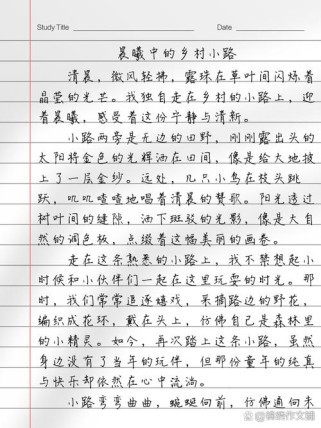 Study Title
Date
晨曦中的乡村小路
清晨，微风轻拂，露珠在草叶间闪烁着
晶莹的光芒。我独自走在乡村的小路上，迎
着晨曦，感受着这份宁静与清新。
小路两旁是无边的田野，刚刚露出头的
太阳将金色的光辉洒在田间，像是给大地披
上了一层金纱。远处，几只小鸟在枝头跳
跃，叽叽喳喳地唱着清晨的赞歌。阳光透过
树叶间的缝隙，洒下斑驳的光影，像是大自
然的调色板，点缀着这幅美丽的画卷。
走在这条熟悉的小路上，我不禁想起小
时候和小伙伴们一起在这里玩耍的时光。那
时，我们常常追逐嬉戏，采摘路边的野花，
编织成花环，戴在头上，仿佛自己是森林里
的小精灵。如今，再次踏上这条小路，虽然
身边没有了当年的玩伴，但那份童年的纯真
与快乐却依然在心中流淌。
小路弯弯曲曲，蜿蜒向前，仿佛通向未